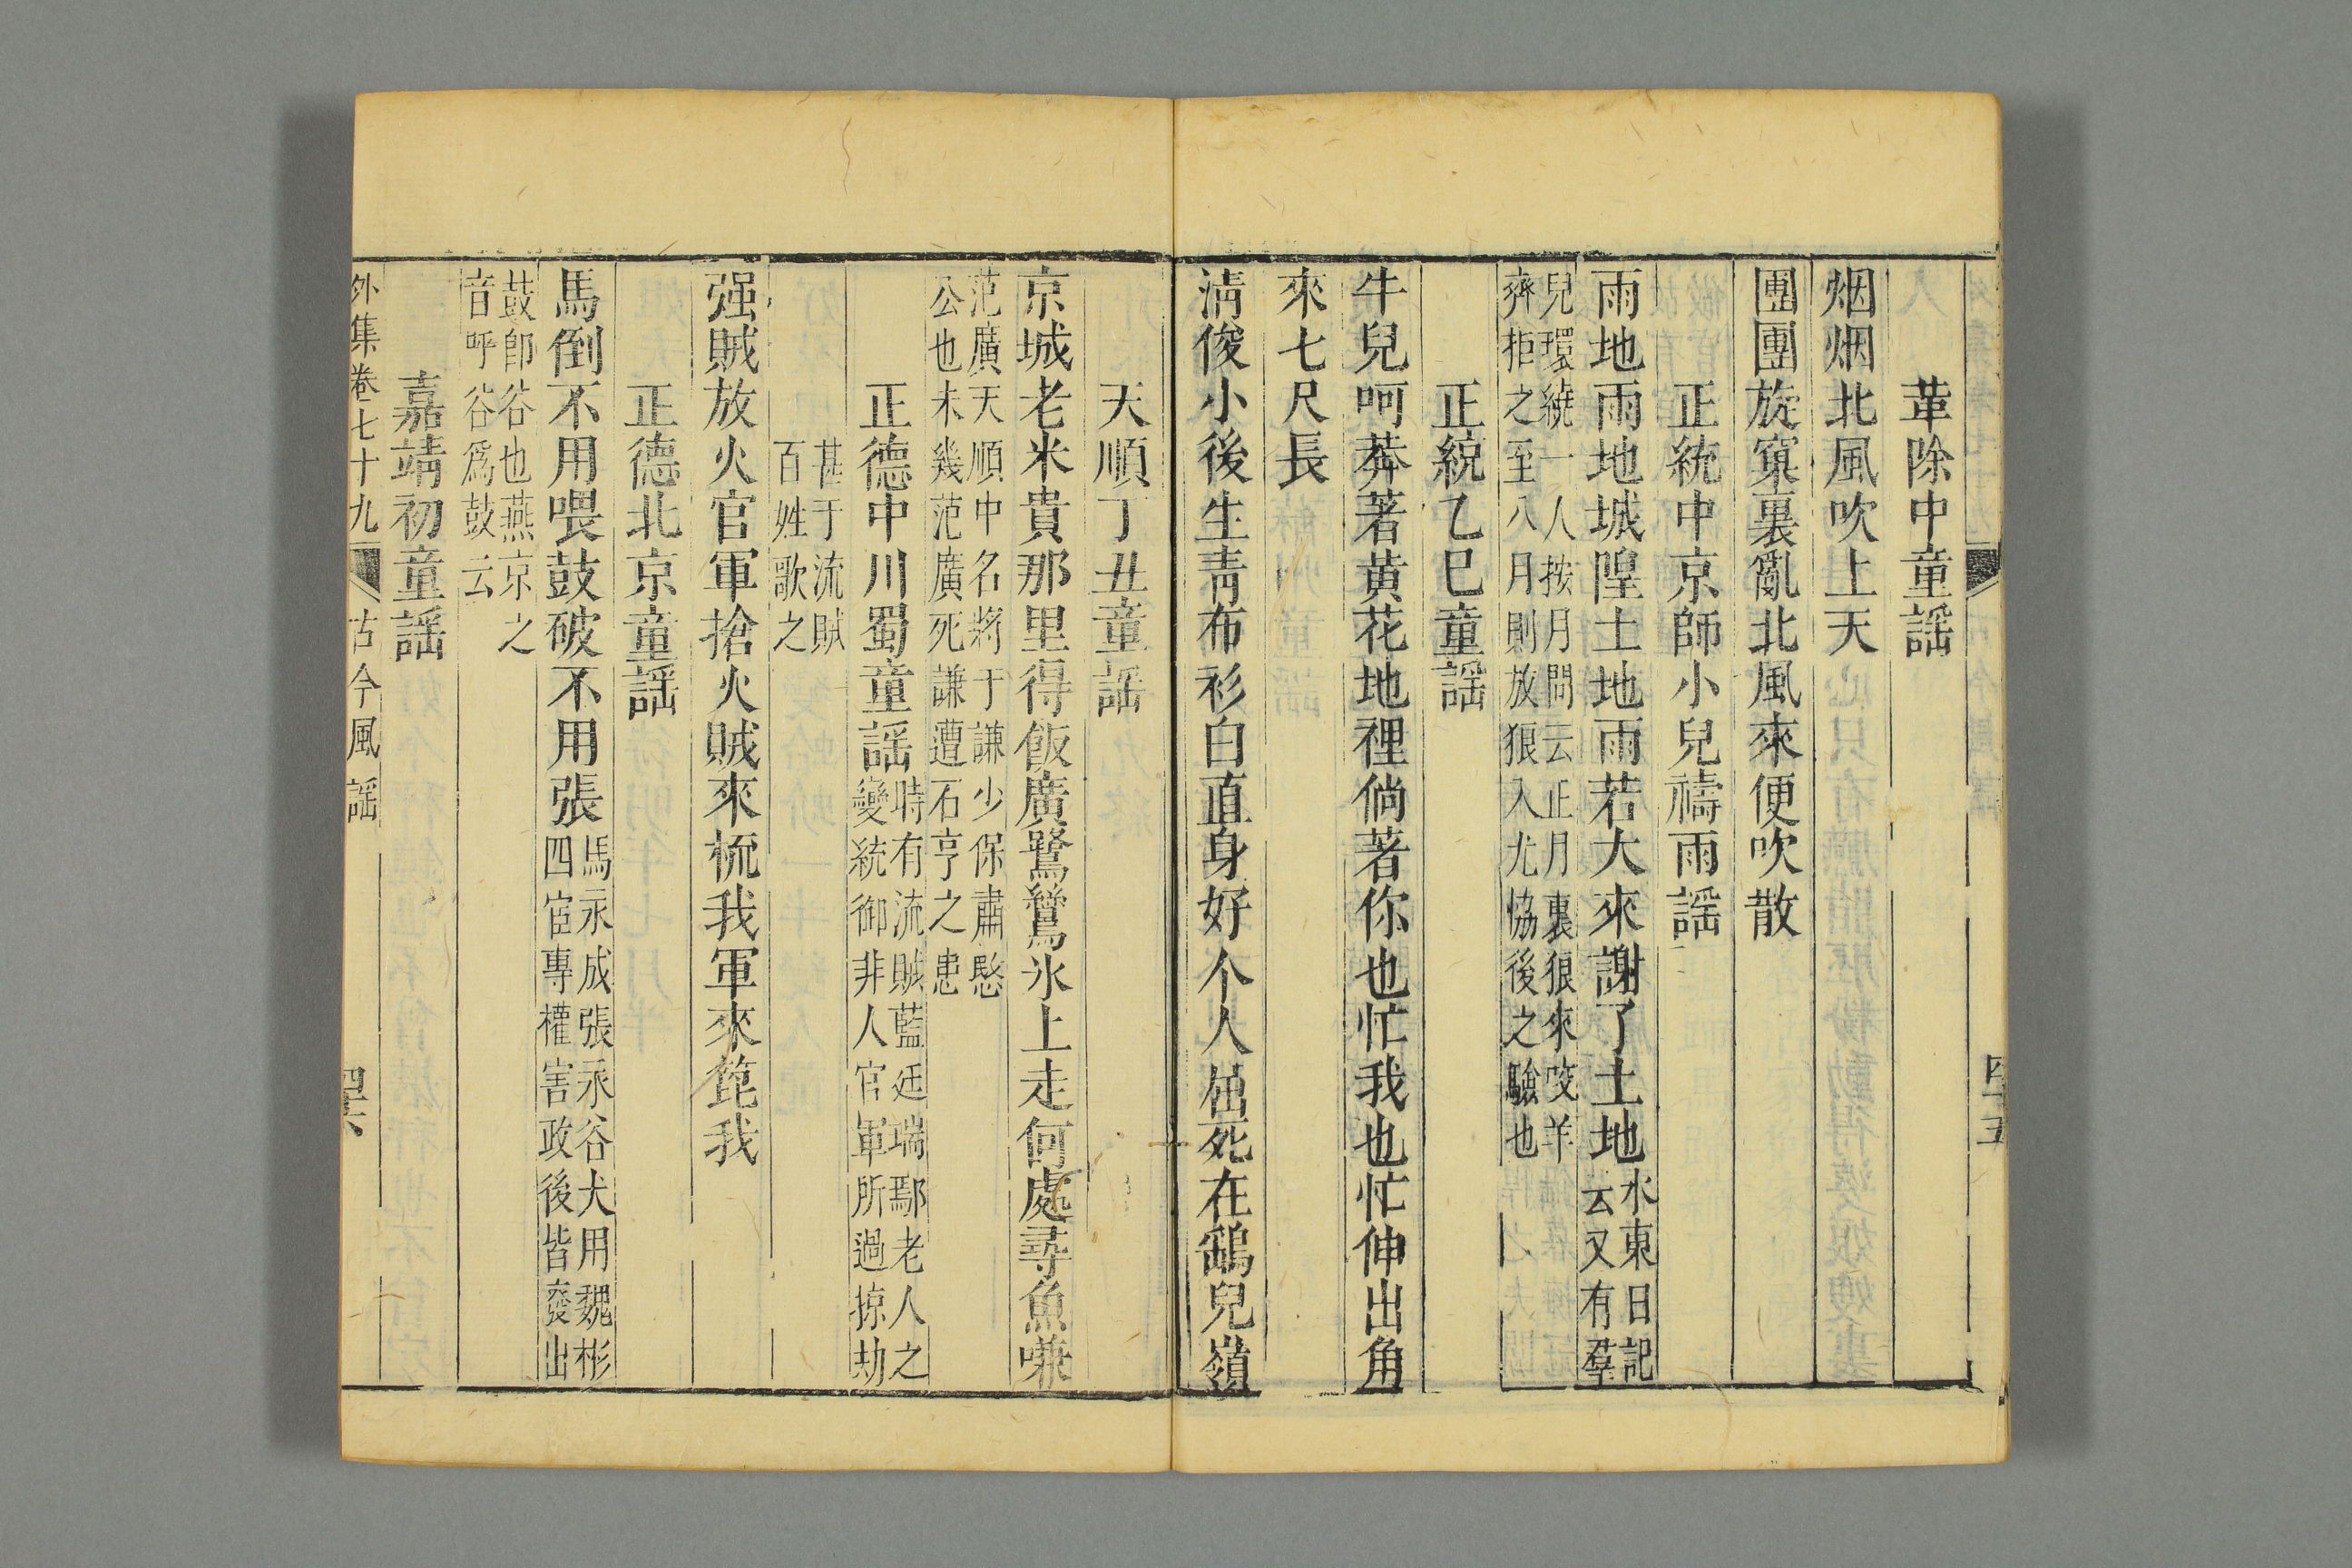 革除中童謡
烟烟北風吹上天
團團旋窠裏亂北風來便吹散
正統中京師小兒禱雨謡
雨地雨地城隍土地雨若大來謝了土地水東日記云又有羣
兒環繞一人按月問云正月裏狼來咬羊
齊拒之至八月則放狼入尤恊後之驗也
正統乙巳童謡
牛兒呵莾著黄花地裡倘著你也忙我也忙伸出角
來七尺長
淸俊小後生青布衫白直身好个人屈死在鷂兒嶺
天順丁丑童謡
京城老米貴那里得飯廣鷺鷥氷上走何處尋魚嗛
范廣天順中名將于謙少保肅愍
公也未幾范廣死謙遭石亨之患
正德中川蜀童謡時有流賊藍廷瑞鄢老人之變統御非人官軍所過掠劫
甚于流賊
百姓歌之
强賊放火官軍搶火賊來梳我軍來箆我
正德北京童謡
馬倒不用喂鼓破不用張馬永成張永谷大用魏彬四宦專權害政後皆發出
鼓卽谷也燕京之
音呼谷爲鼓云
嘉靖初童謡
外集卷七十九
古今風謡
四十五